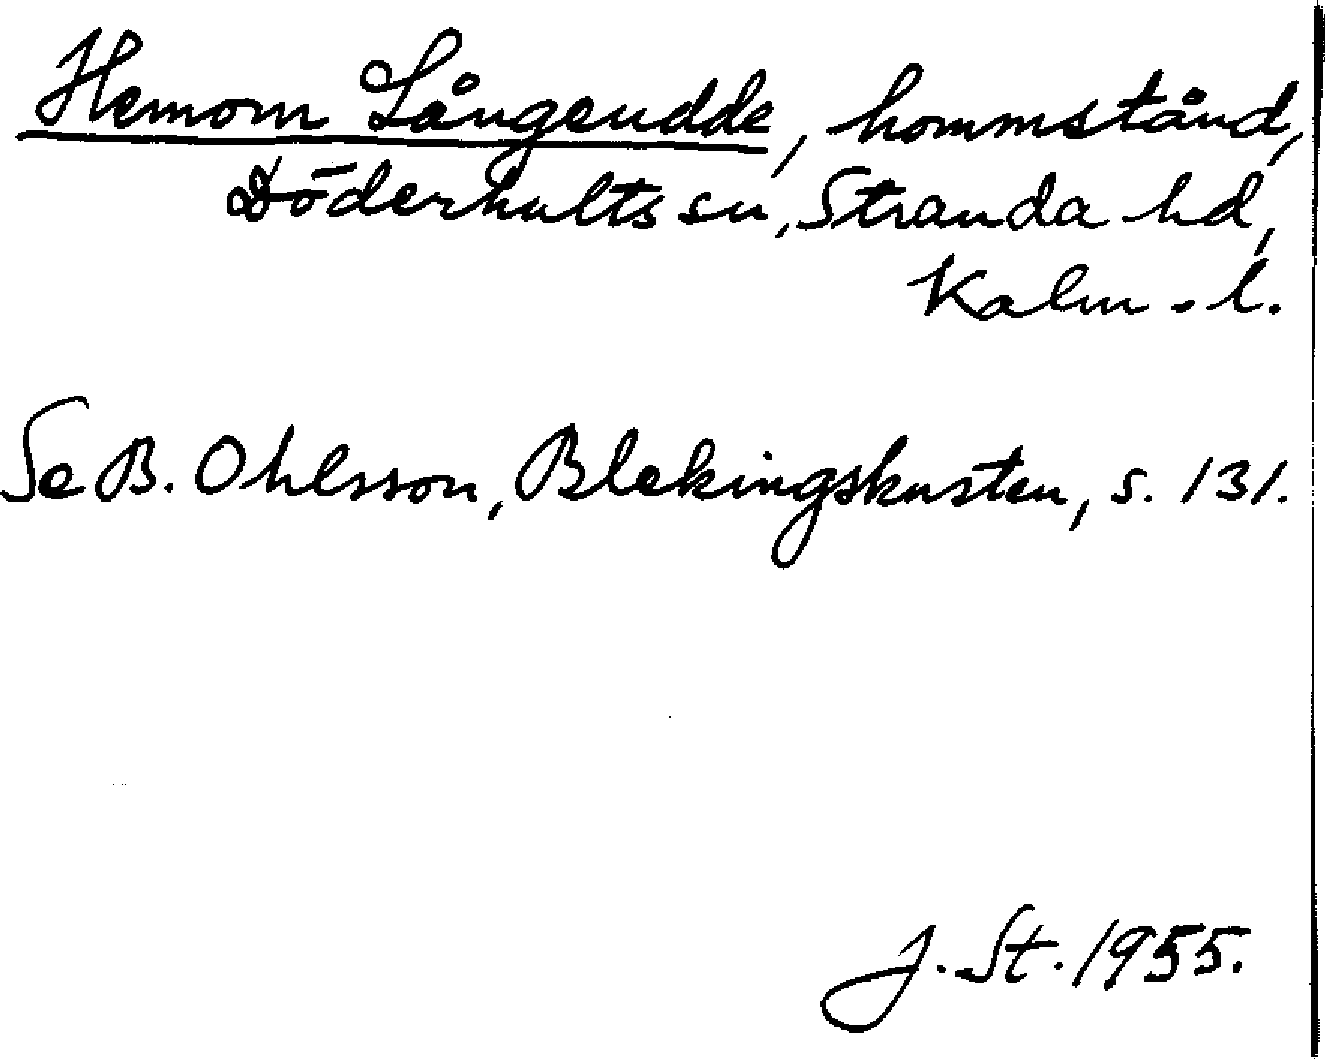 Hemom Långeudde, hommstånd,
Döderhults sn, Stranda hd,
Kalm. l.
Se B. Ohlsson, Blekingskusten, s. 131.
J. St. 1955.